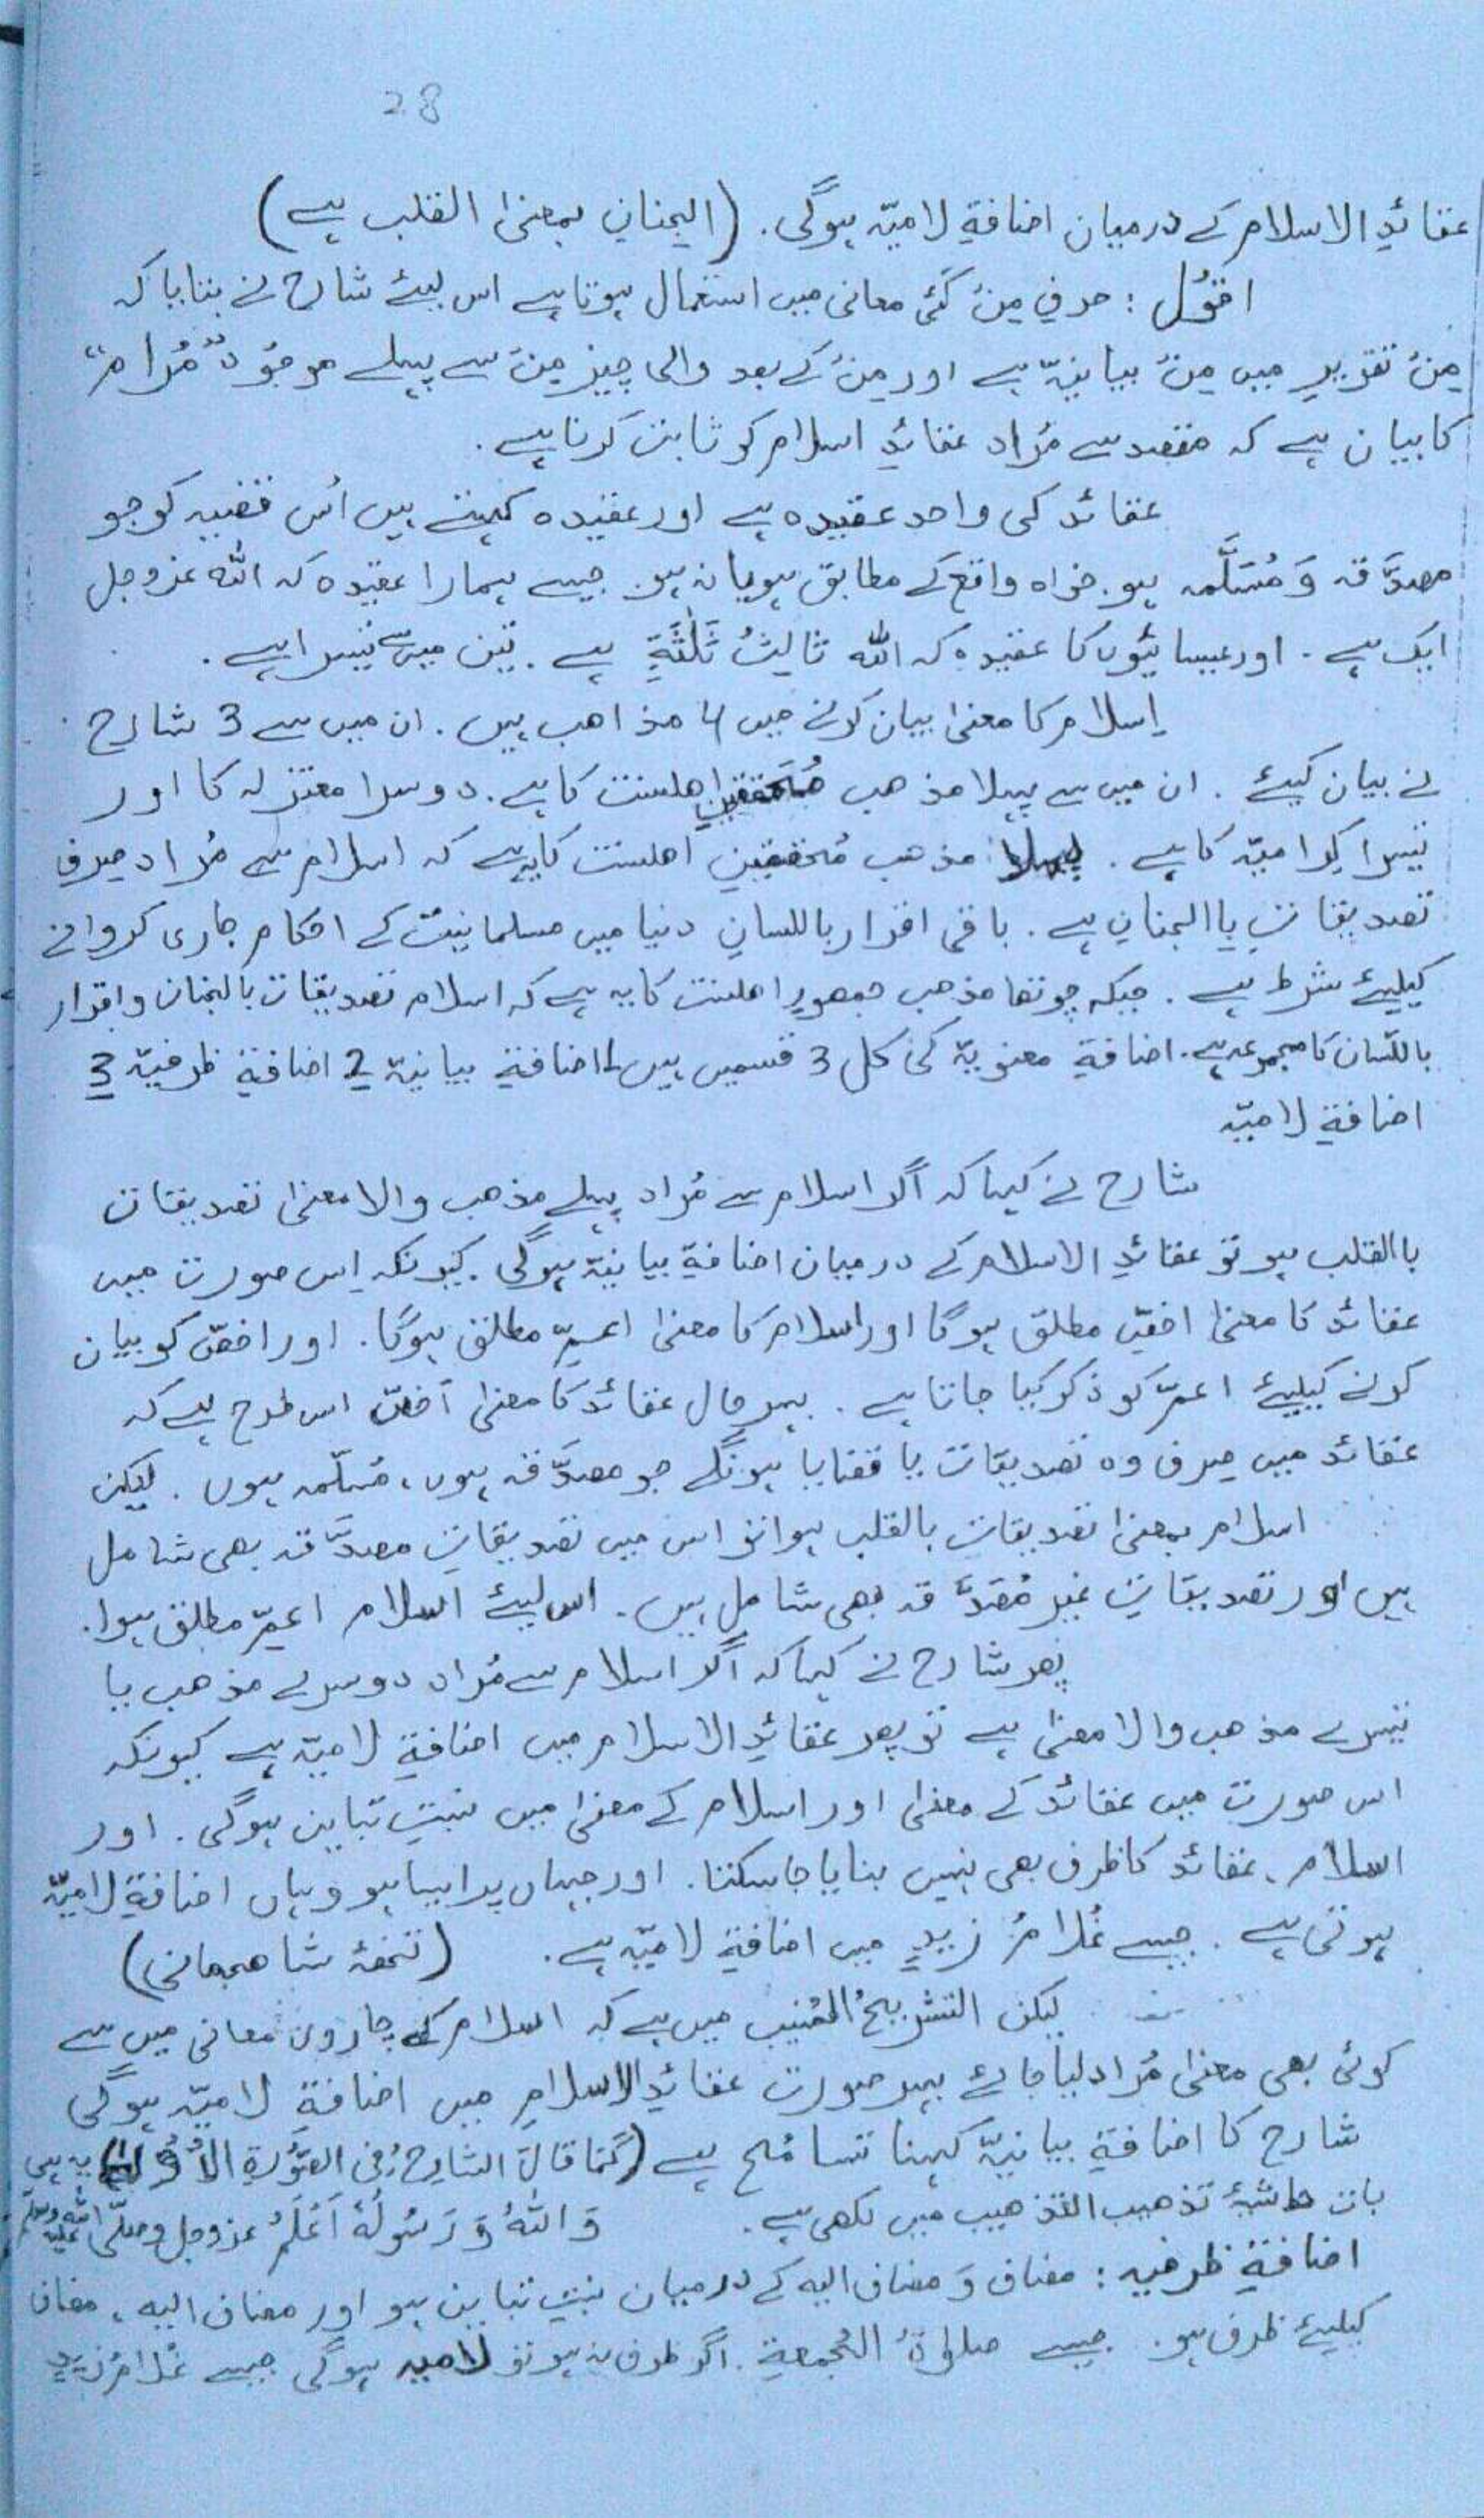 28
عقائدِ الاسلام کے درمیان اضافۃِ لامیّہ ہوگی. (الجنانِ بمعنیٰ القلب ہے)
اقوُل : حرفِ مِنْ کئی معانی میں استعمال ہوتا ہے اس لیئے شارح نے بتایا کہ
مِنْ تقریرِ میں مِنْ بیانیّہ ہے اور مِنْ کے بعد والی چیز مِنْ سے پہلے موجُود "مُرام"
کا بیان ہے کہ مقصد سے مُراد عقائدِ اسلام کو ثابت کرنا ہے.
عقائد کی واحد عقیدہ ہے اور عقیدہ کہتے ہیں اُس قضیہ کو جو
مصدَّقہ وَ مُسَلَّمہ ہو. خواہ واقع کے مطابق ہو یا نہ ہو. جیسے ہمارا عقیدہ کہ اللّٰہ عزوجل
ایک ہے. اور عیسائیوں کا عقیدہ کہ اللّٰہ ثالِثُ ثَلٰثَةٍ ہے. تین میں سے تیسرا ہے.
اِسلام کا معنیٰ بیان کرنے میں 4 مذاھب ہیں. ان میں سے 3 شارح
نے بیان کیئے. ان میں سے پہلا مذھب مُحققینِ اھلسنت کا ہے. دوسرا معتزلہ کا اور
تیسرا کرامیّہ کا ہے. پہلا مذھب مُحققینِ اھلسنت کا یہ ہے کہ اسلام سے مُراد صِرف
تصدیقات باالجنانِ ہے. باقی اقرار باللسانِ دنیا میں مسلمانیّت کے احکام جاری کروانے
کیلیئے شرط ہے. جبکہ چوتھا مذھب جمھورِ اھلسنت کا یہ ہے کہ اسلام تصدیقات بالجنان و اقرار
باللّسان کا مجموعہ ہے. اضافۃِ معنویّہ کی کل 3 قسمیں ہیں 1 اضافۃِ بیانیّہ 2 اضافۃِ ظرفیّہ 3
اضافۃِ لامیّہ
شارح نے کہا کہ اگر اسلام سے مُراد پہلے مذھب والا معنیٰ تصدیقات
باالقلب ہو تو عقائدِ الاسلام کے درمیان اضافۃِ بیانیّہ ہوگی. کیونکہ اِس صورت میں
عقائد کا معنیٰ اخصّ مطلق ہوگا اور اسلام کا معنیٰ اعمِّ مطلق ہوگا. اور اخصّ کو بیان
کرنے کیلیئے اعمّ کو ذکر کیا جاتا ہے. بہرحال عقائد کا معنیٰ اَخصّ اس طرح ہے کہ
عقائد میں صِرف وہ تصدیقات یا قضایا ہونگے جو مصدَّقہ ہوں، مُسلّمہ ہوں. لیکن
اسلام بمعنیٰ تصدیقات بالقلب ہوا تو اس میں تصدیقاتِ مصدَّقہ بھی شامل
ہیں اور تصدیقاتِ غیر مُصَدَّقہ بھی شامل ہیں. اس لیئے اسلام اعمِّ مطلق ہوا.
پھر شارح نے کہا کہ اگر اسلام سے مُراد دوسرے مذھب یا
تیسرے مذھب والا معنیٰ ہے تو پھر عقائدِ الاسلام میں اضافۃِ لامیّہ ہے کیونکہ
اس صورت میں عقائد کے معنیٰ اور اسلام کے معنیٰ میں نسبتِ تباین ہوگی. اور
اسلام، عقائد کا ظرف بھی نہیں بنایا جاسکتا. اور جہاں پر ایسا ہو وہاں اضافۃِ لامیّہ
ہوتی ہے. جیسے غُلامُ زیدٍ میں اضافۃِ لامیّہ ہے. (تحفۂ شاھجہانی)
لیکن التشریحُ المُنیب میں ہے کہ اسلام کے چاروں معانی میں سے
کوئی بھی معنیٰ مُراد لیا جائے بہر صورت عقائدِ الاسلامِ میں اضافۃِ لامیّہ ہوگی
شارح کا اضافۃِ بیانیّہ کہنا تسامُح ہے (کَمَا قَالَ الشارِحُ فِی الصُّورۃِ الاُوْلیٰ) یہ ہی
بات حاشیۂ تذھیب التذھیب میں لکھی ہے. وَ اللّٰہُ وَ رَسُولُہٗ اَعْلَمُ عزوجل و صلّی اللّٰہ علیہ وسلّم
اضافۃِ ظرفیہ : مضاف وَ مضاف الیہ کے درمیان نسبتِ تباین ہو اور مضاف الیہ، مضاف
کیلیئے ظرف ہو. جیسے صلوٰۃُ الجُمعةِ. اگر ظرف نہ ہو تو لامیہ ہوگی جیسے غُلامُ زیدٍ